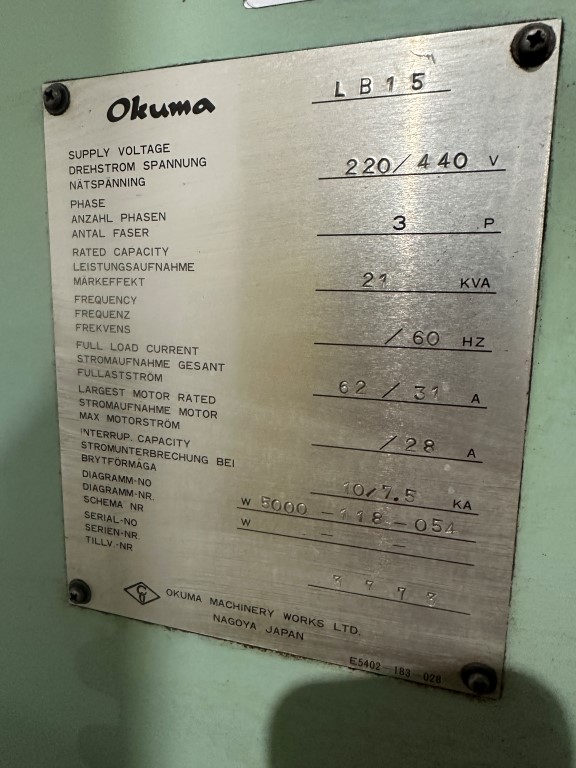 Okuma
L B 1 5
SUPPLY VOLTAGE
DREHSTROM SPANNUNG 220/440 V
NÄTSPÄNNING
PHASE
ANZAHL PHASEN 3 P
ANTAL FASER
RATED CAPACITY
LEISTUNGSAUFNAHME 21 KVA
MÄRKEFFEKT
FREQUENCY
FREQUENZ / 60 HZ
FREKVENS
FULL LOAD CURRENT
STROMAUFNAHME GESANT 62 / 31 A
FULLASTSTRÖM
LARGEST MOTOR RATED
STROMAUFNAHME MOTOR / 28 A
MAX MOTORSTRÖM
INTERRUP. CAPACITY
STROMUNTERBRECHUNG BEI 10/7.5 KA
BRYTFÖRMÅGA
DIAGRAMM-NO W 5000-118-054
DIAGRAMM-NR. W - -
SCHEMA NR
SERIAL-NO
SERIEN-NR 3773
TILLV.-NR
OKUMA MACHINERY WORKS LTD.
NAGOYA JAPAN
E5402-183-028